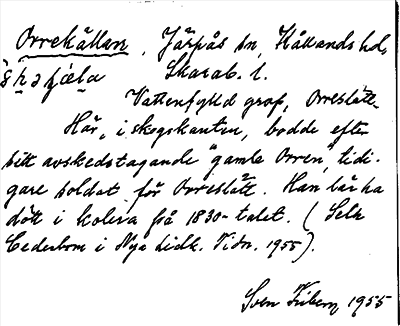 Orrekällan, Järpås sn, Kållands hd,
Skarab. l.
Vattenfylld grop, Orreslätt.
Här, i skogskanten, bodde efter
sitt avskedstagande "gamle Orren", tidi-
gare soldat för Orreslätt. Han lär ha
dött i kolera på 1830-talet. (Selh
Cederbom i Nya Lidk. Tidn. 1955).
Sven Friberg 1955